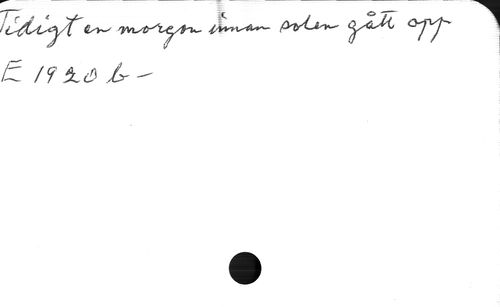 Tidigt en morgon innan solen gått opp
E 1920 b –